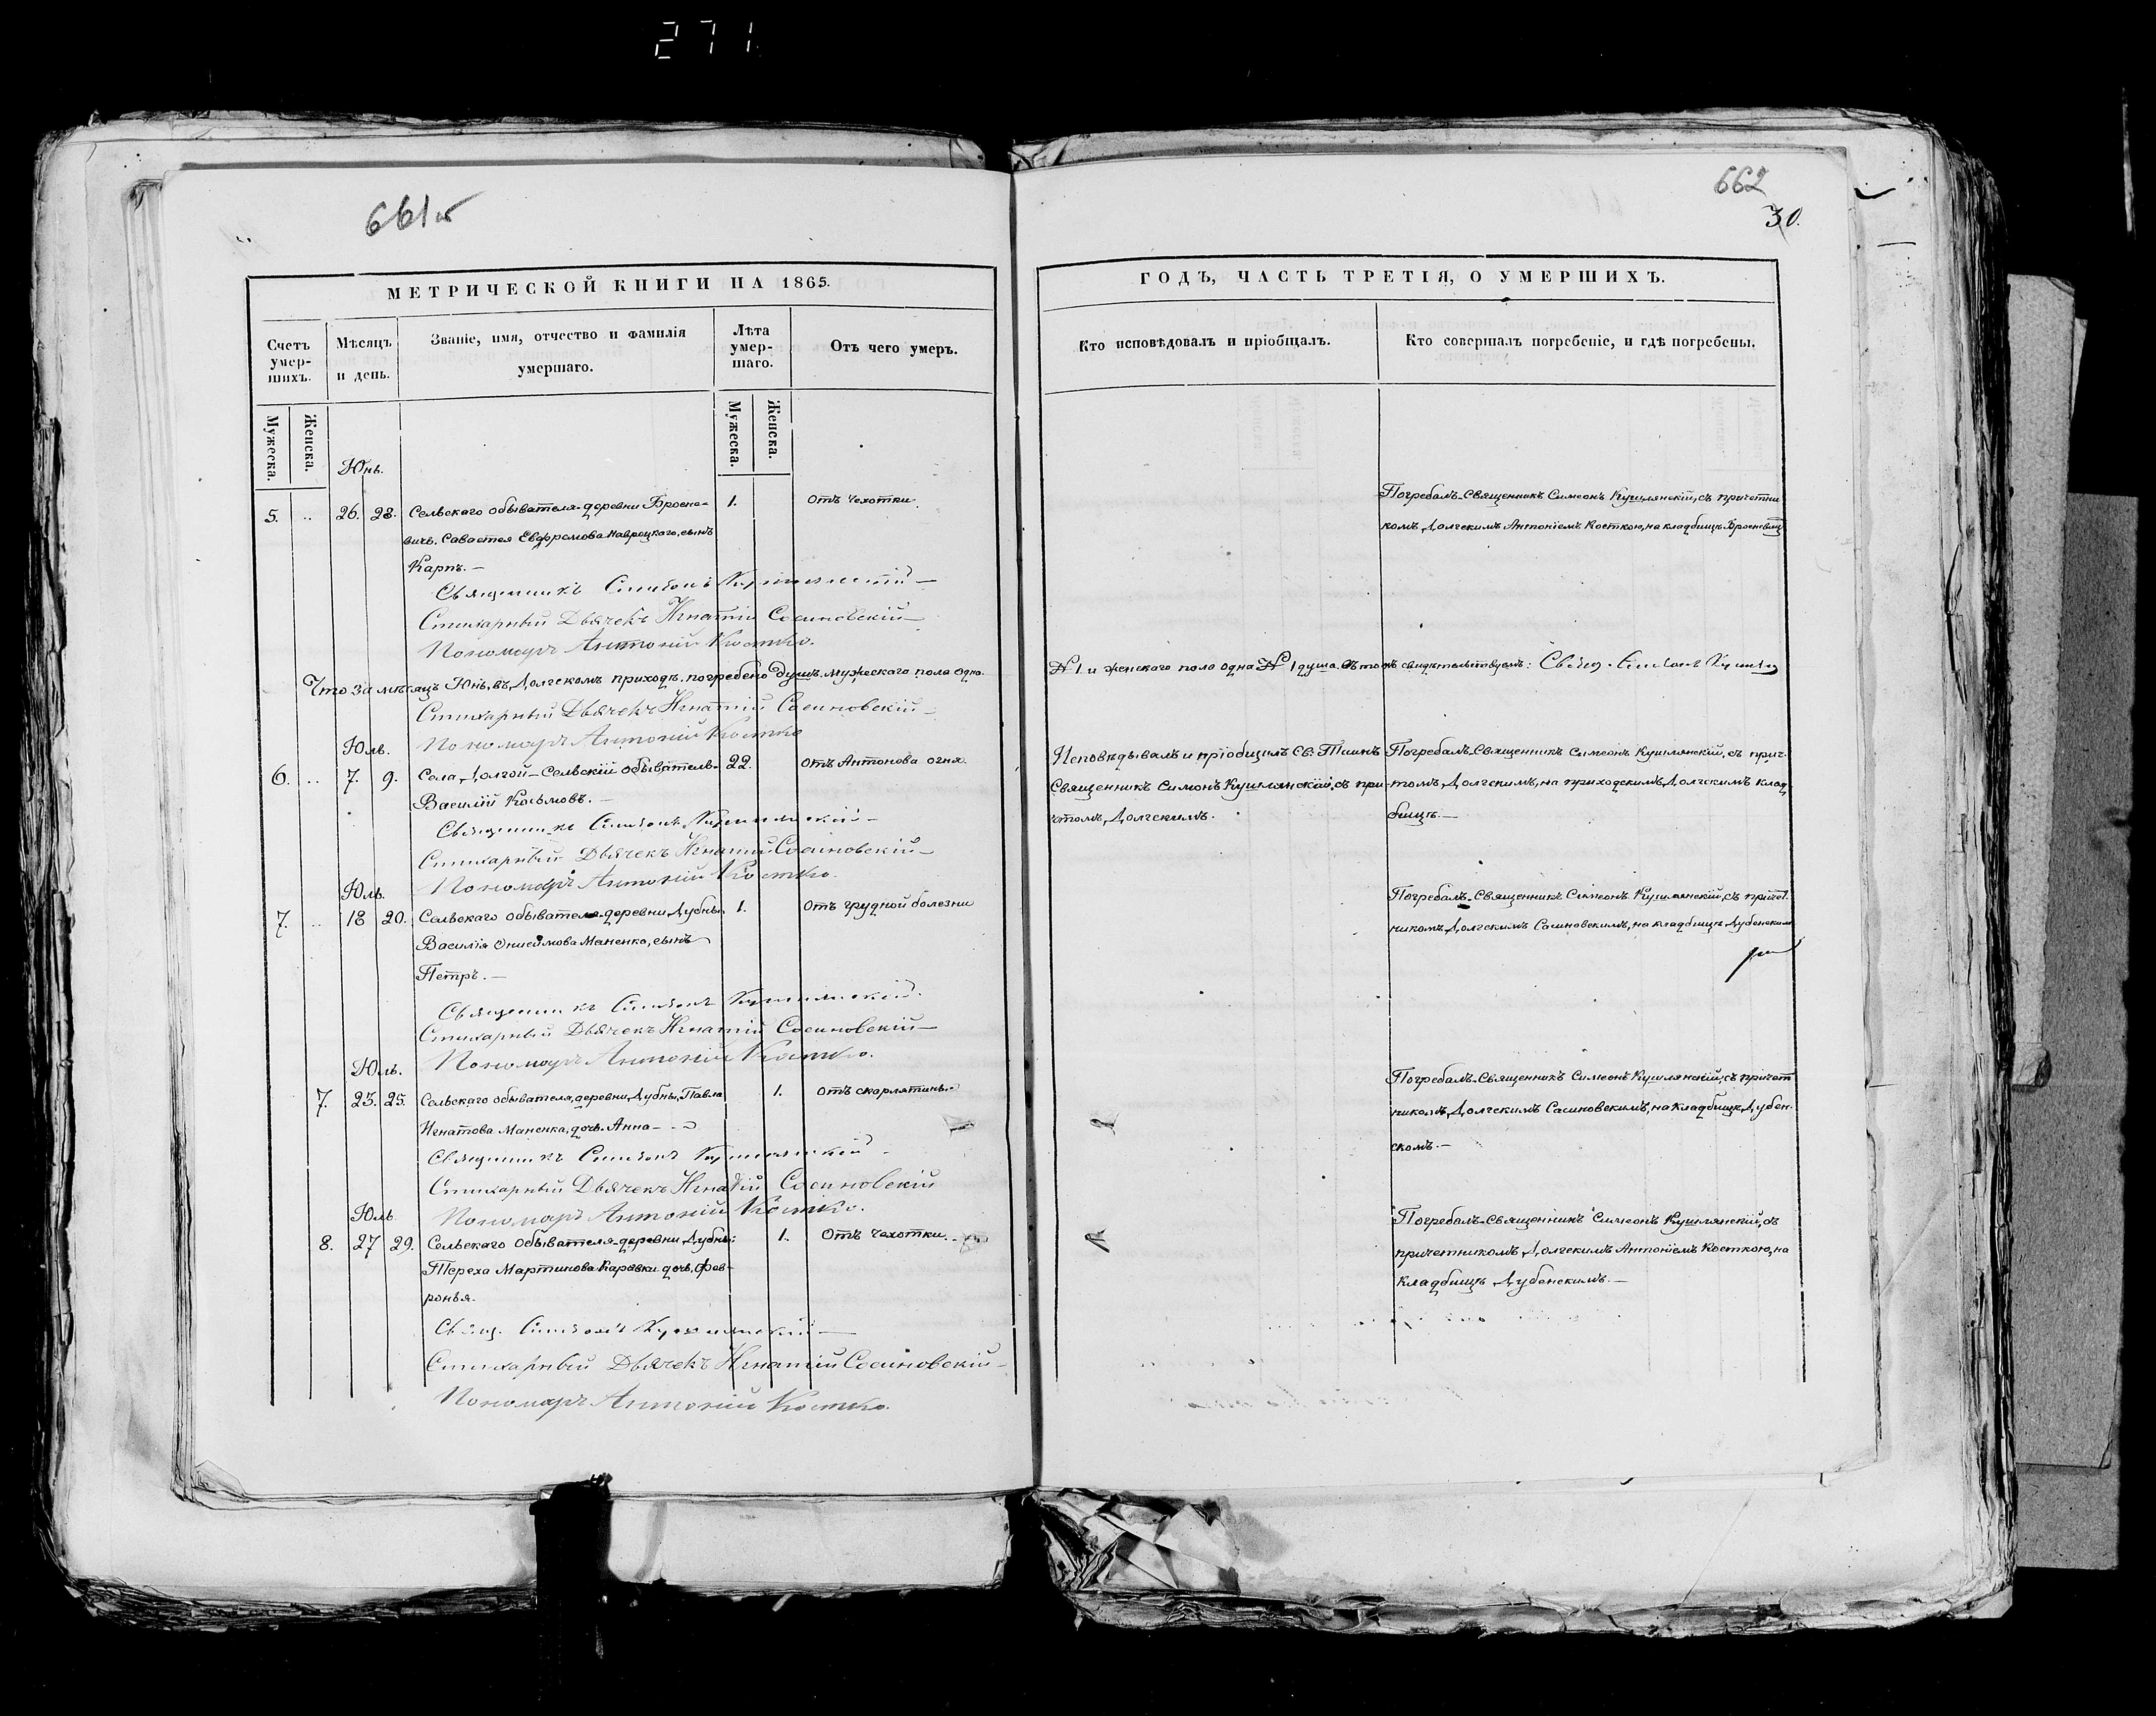 271.
661об
МЕТРИЧЕСКОЙ КНИГИ НА 1865.
Счетъ умер-шихъ.
Мѣсяцъ и день.
Званіе, имя, отчество и фамилія умершаго.
Лѣта умер-шаго.
Отъ чего умеръ.
Мужеска.
Женска.
Мужеска.
Женска.
Юнь.
5. .. 26. 28. Сельскаго обывателя деревни Бросне- 1. Отъ чехотки.
вичь. Савастея Евфремова Навроцкаго, сынъ
Карпъ. —
Священникъ Симеонъ Кушлянскій —
Стихарный Дьячекъ Игнатій Сосиновскій —
Пономарь Антоній Костко.
Что за мѣсяцъ Юнь, въ Долгскомъ приходѣ, погребено душъ мужескаго пола одно.
Стихарный Дьячекъ Игнатій Сосиновскій —
Пономарь Антоній Костко
Юль.
6. .. 7. 9. Села Долгой — Сельскій обыватель 22. отъ Антонова огня.
Василій Косьмовъ. —
Священникъ Симеонъ Кушлянскій —
Стихарный Дьячекъ Игнатій Сосиновскій —
Пономарь Антоній Костко.
Юль.
7. .. 18 20. Сельскаго обывателя деревни Дубны 1. Отъ грудной болезни
Василія Онисимова Маненко, сынъ
Петръ. —
Священникъ Симеонъ Кушлянскій.
Стихарный Дьячекъ Игнатій Сосиновскій —
Пономарь Антоній Костко.
Юль.
7. 23. 25. Сельскаго обывателя, деревни Дубны, Павла 1. отъ скарлятины
Игнатова Маненка, дочь Анна —
Священникъ Симеонъ Кушлянскій —
Стихарный Дьячекъ Игнатій Сосиновскій
Пономарь Антоній Костко.
Юль
8. 27 29. Сельскаго обывателя деревни Дубны: 1. Отъ чехотки.
Тереха Мартинова Каравки дочь, Фев-
ронья.
Свящ. Симеонъ Кушлянскій —
Стихарный Дьячекъ Игнатій Сосиновскій —
Пономарь Антоній Костко.
662
30.
ГОДЪ, ЧАСТЬ ТРЕТІЯ, О УМЕРШИХЪ.
Кто исповѣдовалъ и пріобщалъ.
Кто совершалъ погребеніе, и гдѣ погребены.
Погребалъ Священникъ Симеонъ Кушлянскій, съ причетни
комъ Долгскимъ Антоніемъ Косткою, на кладбищѣ
№ 1 и женскаго пола одна № 1 душа. въ томъ свидѣтельствуемъ: Свящ. Симеонъ
Исповѣдывалъ и пріобщилъ Св: Таинъ
Священникъ Симонъ Кушлянскій, съ при-
чтомъ Долгскимъ.
Погребалъ Священникъ Симеонъ Кушлянскій, съ прич-
томъ Долгскимъ, на приходскимъ Долгскимъ клад
бищѣ. —
Погребалъ Священникъ Симеонъ Кушлянскій, съ причет
никомъ Долгскимъ Сасиновскимъ, на кладбищѣ Дубенским
Погребалъ Священникъ Симеонъ Кушлянскій, съ причет
никомъ Долгскимъ Сасиновскимъ, на кладбищѣ Дубен-
скомъ. —
Погребалъ Священникъ Симеонъ Кушлянскій, съ
причетникомъ Долгскимъ Антоніемъ Косткою, на
кладбищѣ Дубенскимъ. —